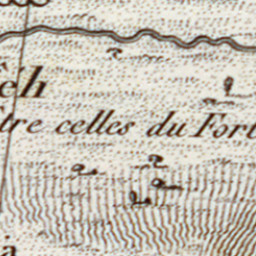 êh
tre celles du Fort